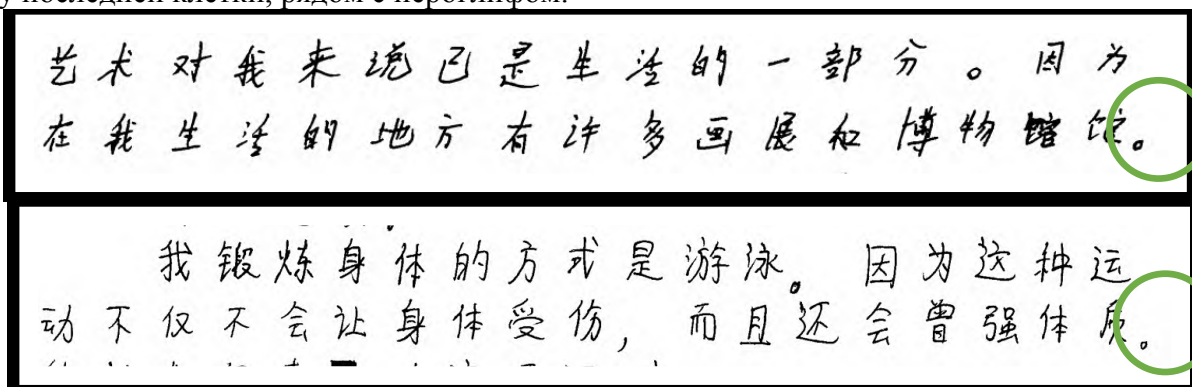 у последней клетки, рядом с иероглифом.
艺术对我来说已是生活的一部分。因为
在我生活的地方有许多画展和博物馆。
我锻炼身体的方式是游泳。因为这种运
动不仅不会让身体受伤，而且还会曾强体质。